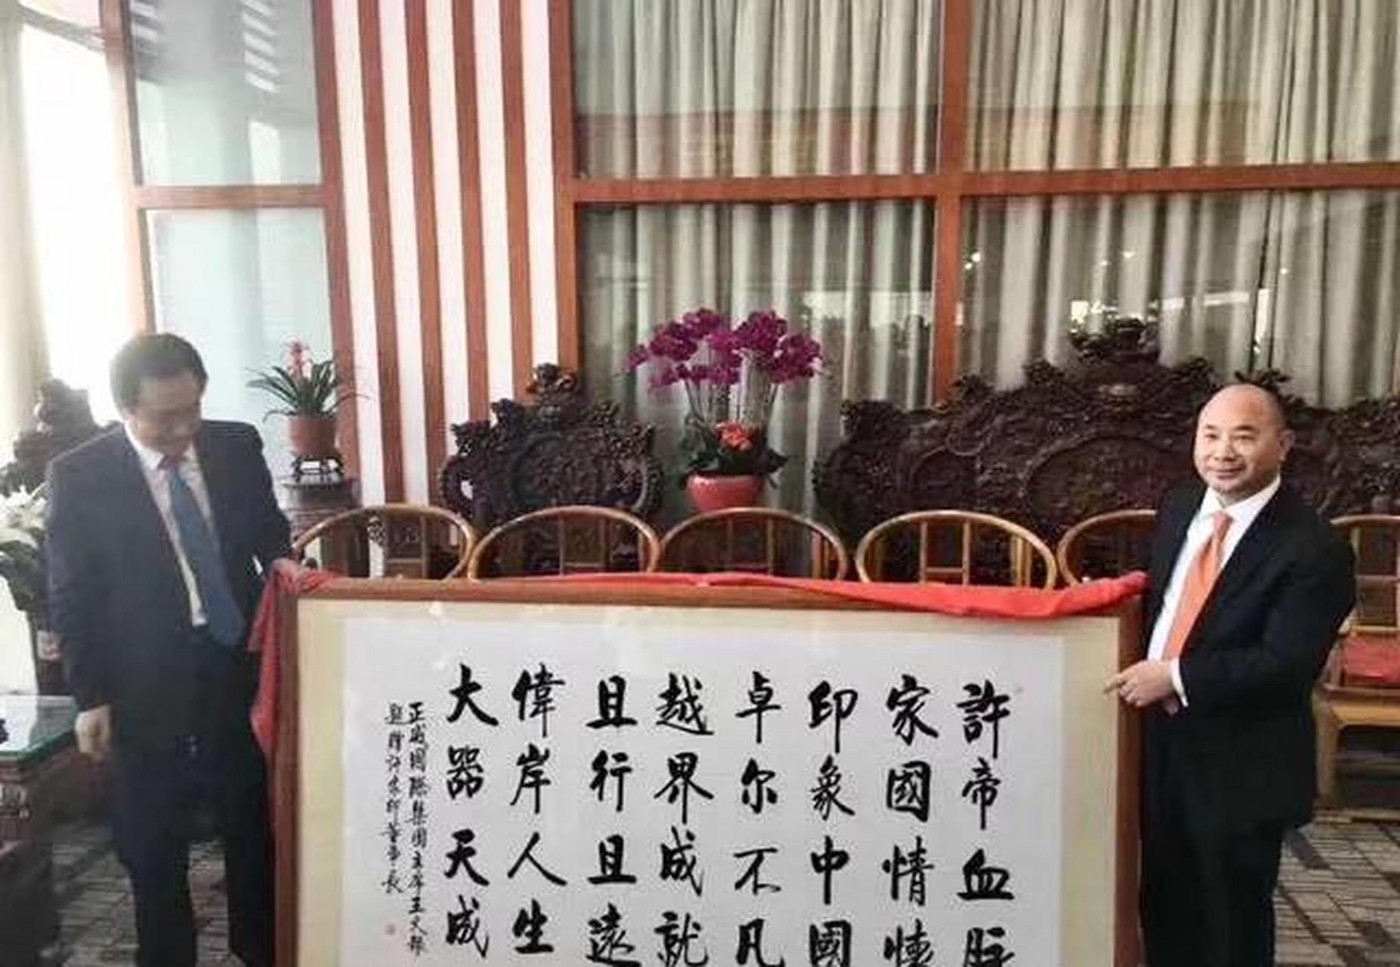 許帝血脈
家國情懷
印象中國
卓尔不凡
越界成就
且行且遠
偉岸人生
大器天成
正威國際集團主席王文銀
題贈許家印董事長